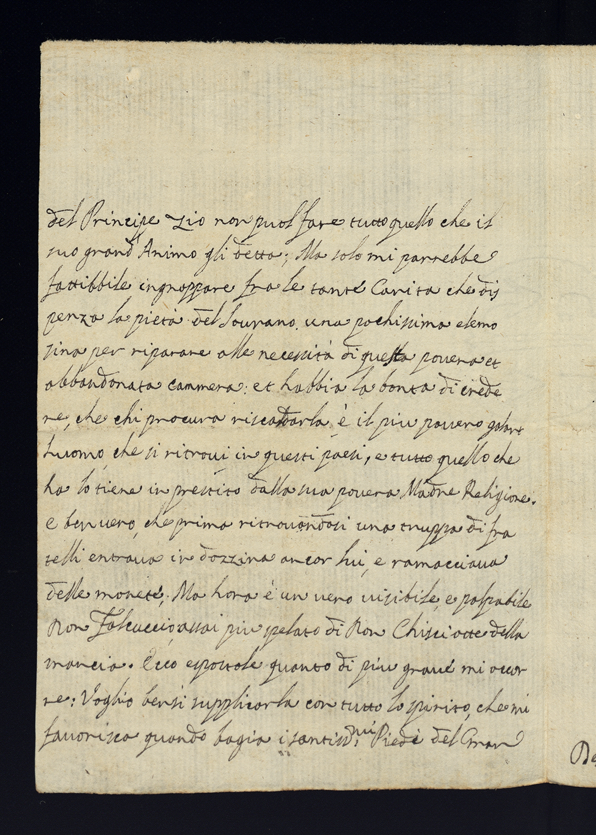 del Principe Zio non puol fare tutto quello che il
suo grand'Animo gli detta; Ma solo mi parrebbe
fattibbile ingroppare fra le tante Carita che dis
penza la pietà del Sourano, una pochissima elemo
sina per riparare alle necessità di questa povera et
abbandonata cammera: et habbia la bontà di crede
re, che chi procura riscadarla è il piu pouero galant
huomo, che si ritroui in questi paesi, e tutto quello che
ha lo tiene in prestito dalla sua pouera Madre Religione.
e ben uero, che prima ritrouandosi una truppa di fra
telli entraua in dozzina ancor lui, e ramacciaua
delle monete; Ma hora è un uero uisibile, e palpabile
Ron Falcuccio, assai piu pelato di Ron Chisciotte della
mancia. Ecco espostole quanto di piu graue mi occor
re: Voglio bensi supplicarla con tutto lo spirito, che mi
fauorisca quando bagia i santiss.mi Piedi del Gran